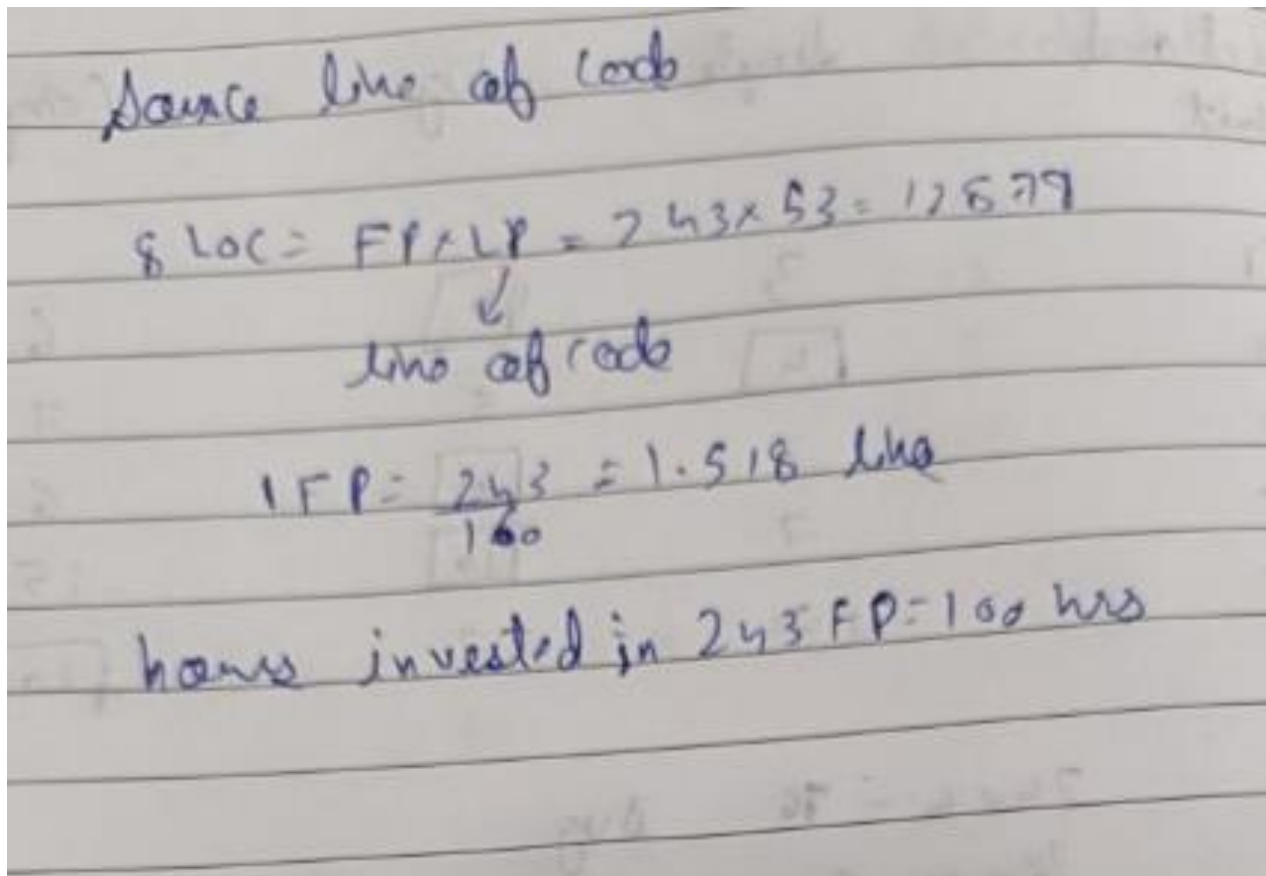 Source line of code
SLOC = FP × LP = 243 × 53 = 12879
↓
line of code
1 FP = 243 = 1.518 line
160
hours invested in 243 FP = 160 hrs